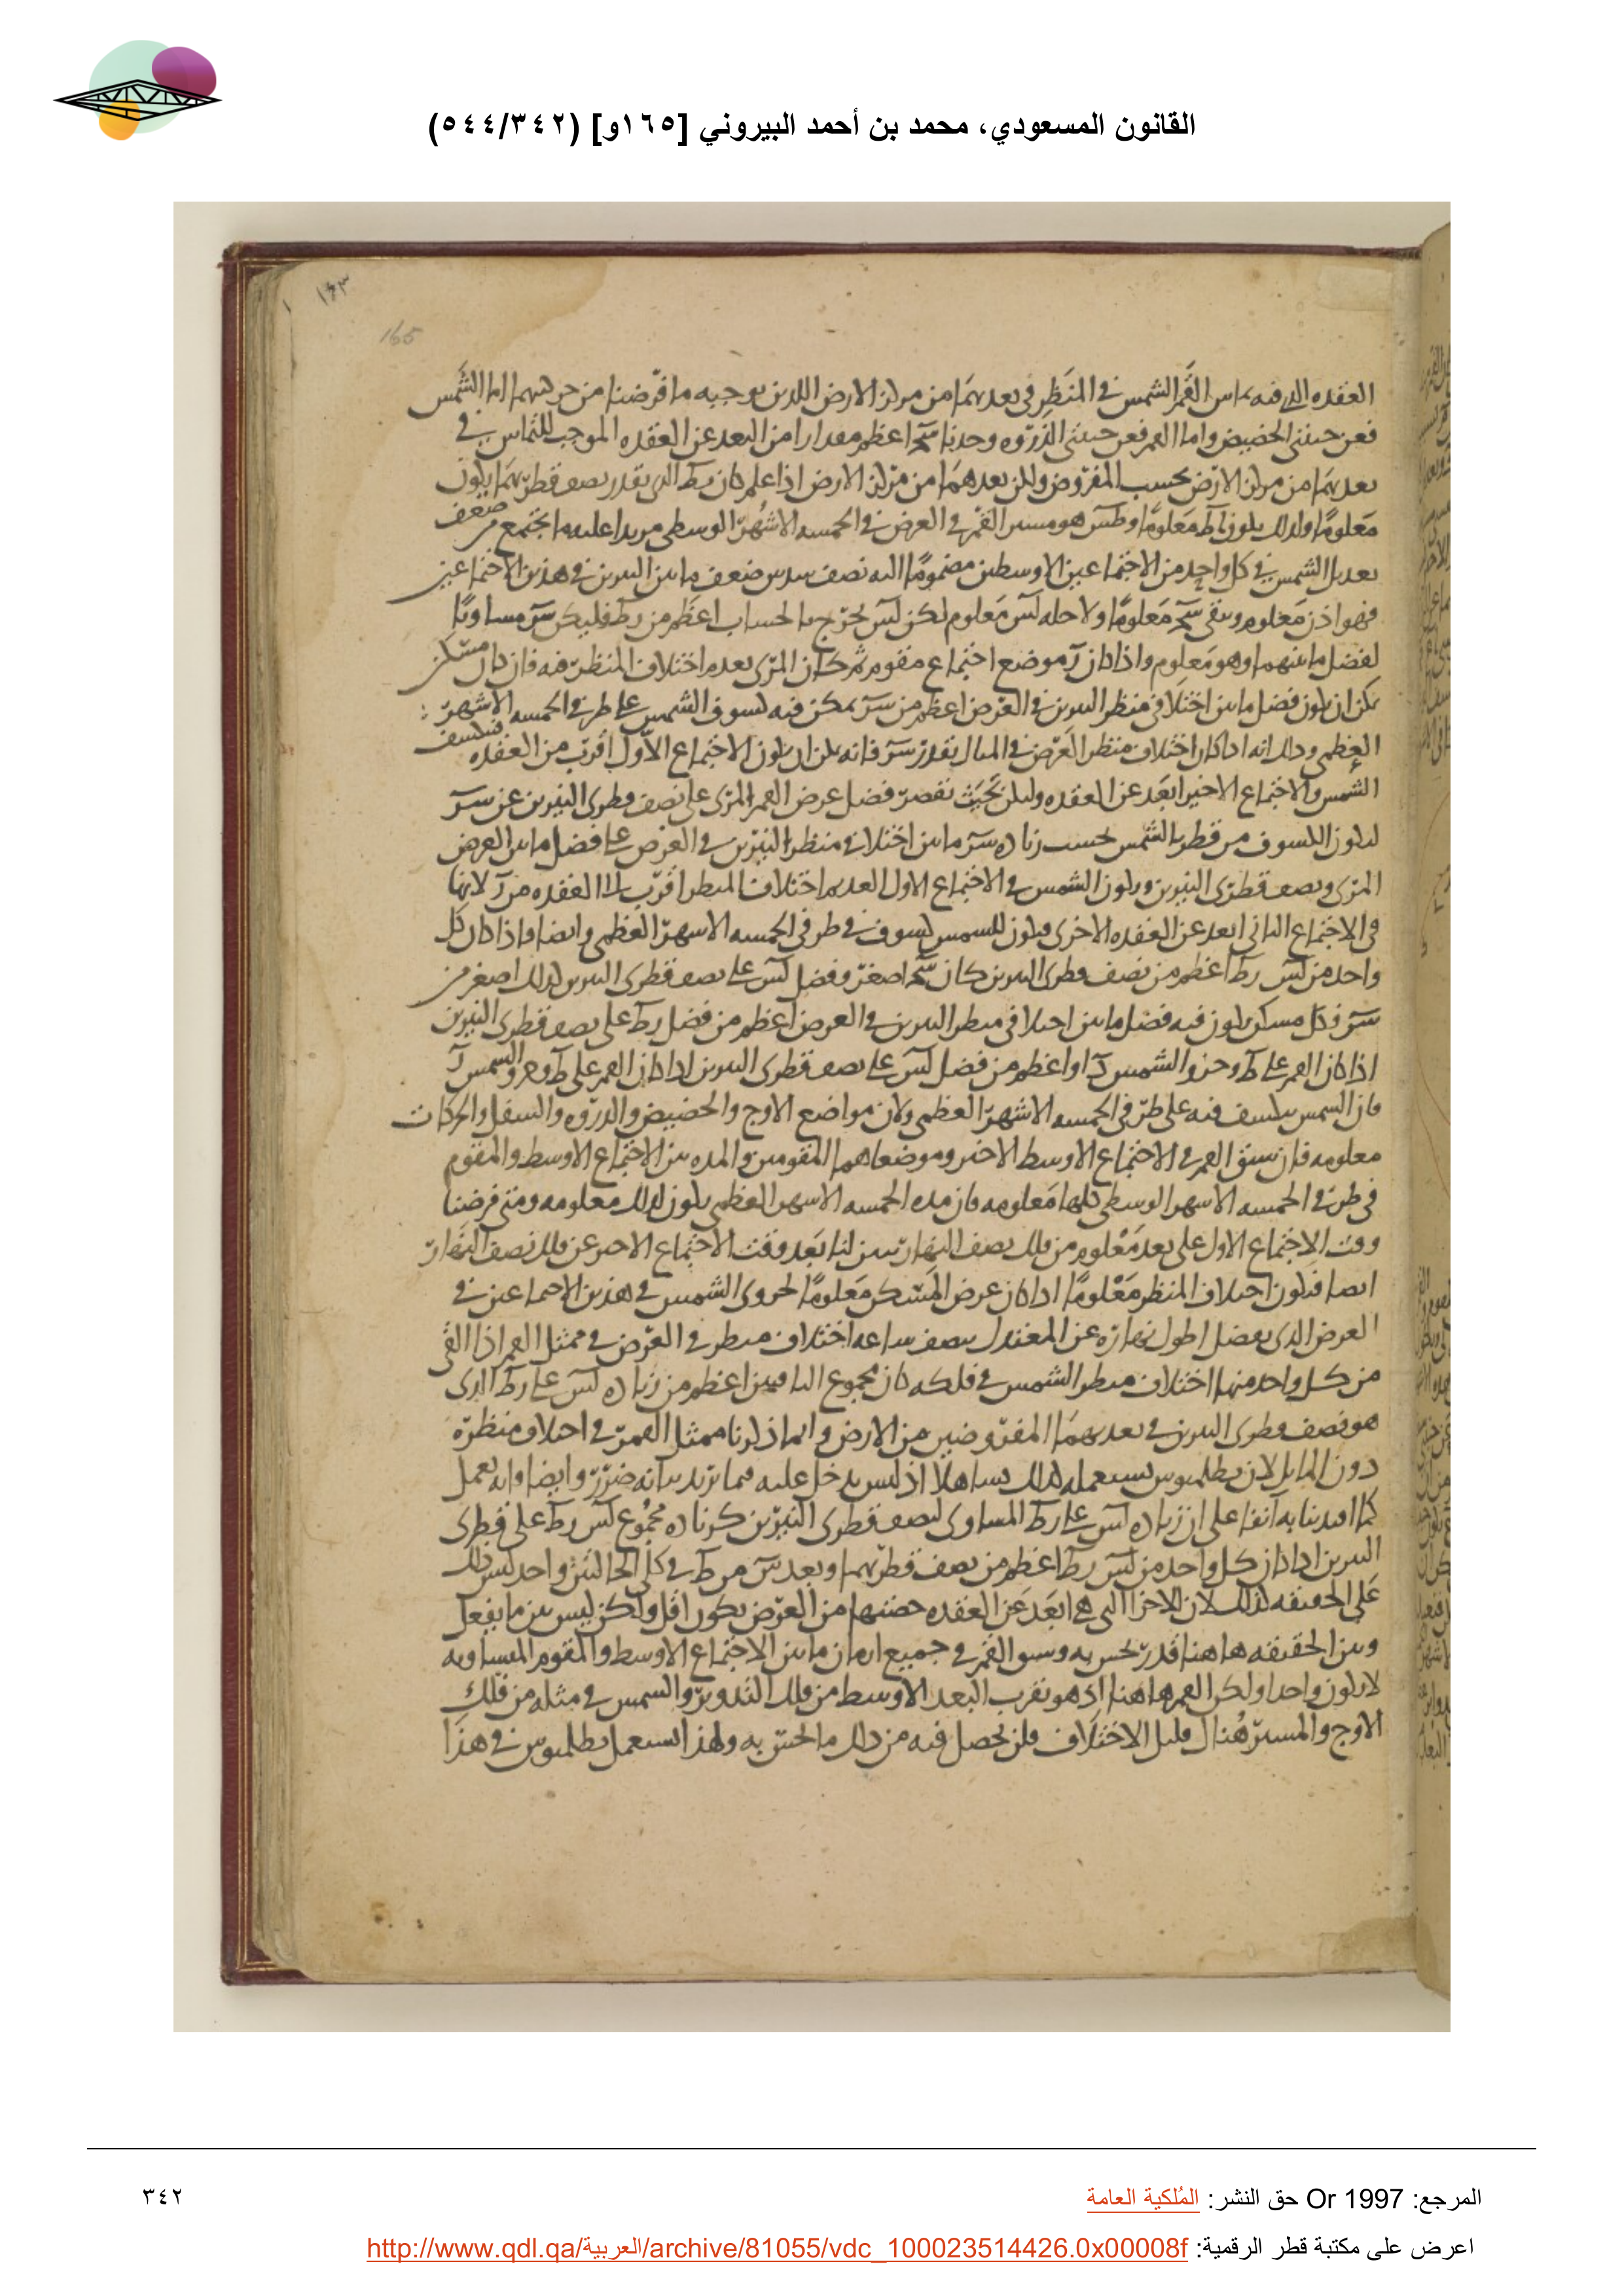 القانون المسعودي، محمد بن أحمد البيروني [١٦٥و] (٥٤٤/٣٤٢)
١٦٣
165
العقده الذى فيه يماس القمر الشمس فى المنظر فى بعديهما من مركز الارض اللذين يوجبه ما فرضنا من حركتيهما اما الشمس
فعن جنبتى الحضيض واما القمر فعن جنبتى الذروه وجدنا اعظم مقدارا من البعد عن العقده الموجب للتماس فى
بعديهما من مركز الارض بحسب المفروض ولكن بعدهما من مركز الارض اذا علم كان الذى بقدر نصف قطريهما يكون
معلوما ولذلك يكون معلوما هو مسير القمر فى العرض فى الخمسه الاشهر الوسطى مزيدا عليه ما يجتمع من ضعف
تعديل الشمس فى كل واحد من الاجتماعين الاوسطين مضموما اليه نصف سدس ضعف ما بين النيرين فى هذين الاجتماعين
فهو اذن معلوم ويبقى معلوما ولاجله معلوم لكن يخرج بالحساب اعظم من فليكن مساويا
لفضل ما بينهما وهو معلوم واذا كان موضع اجتماع مقوم ثم كان المرئى بعده اختلاف المنظر فيه فان كان مسكن
يمكن ان يكون فضل ما بين اختلافى منظر النيرين فى العرض اعظم من يمكن فيه كسوف الشمس على طرفى الخمسه الاشهر
العظمى وذلك انه اذا كان اختلاف منظر العرض فى المثال بقدر فانه يمكن ان يكون الاجتماع الاول اقرب من العقده فينكسف
الشمس والاجتماع الاخير ابعد عن العقده وليكن بحيث يقصر فضل عرض القمر المرئى على نصف قطرى النيرين عن
ليكون الكسوف من قطر الشمس بحسب زياده ما بين اختلافى منظر النيرين فى العرض على فضل ما بين العرض
المرئى ونصف قطرى النيرين ويكون الشمس فى الاجتماع الاول اختلاف المنظر اقرب الى العقده من لانها
فى الاجتماع الثانى ابعد عن العقده الاخرى فيكون للشمس كسوف فى طرفى الخمسه الاشهر العظمى وايضا فاذا كان كل
واحد من اعظم من نصف قطرى النيرين كان اصغر وفضل على نصف قطرى النيرين لذلك اصغر من
وكل مسكن يكون فيه فضل ما بين اختلافى منظر النيرين فى العرض اعظم من فضل على نصف قطرى النيرين
اذا كان القمر على وجزو الشمس او اعظم من فضل على نصف قطرى النيرين اذا كان القمر على وجزو الشمس
فان الشمس ينكسف فيه على طرفى الخمسه الاشهر العظمى ولان مواضع الاوج والحضيض والذروه والسفل والحركات
معلومه فان سبق القمر فى الاجتماع الاوسط الاخير وموضعاهما المقومين والمده بين الاجتماع الاوسط والمقوم
فى طرفى الخمسه الاشهر الوسطى كلها معلومه فان مده الخمسه الاشهر العظمى يكون لذلك معلومه ومتى فرضنا
وقت الاجتماع الاول على بعد معلوم من فلك نصف النهار تبين لنا بعد وقت الاجتماع الاخير عن فلك نصف النهار
ايضا فيكون اختلاف المنظر معلوما اذا كان عرض المسكن معلوما لجزوى الشمس فى هذين الاجتماعين فى
العرض الذى يفضل اطول نهاره عن المعتدل بنصف ساعه اختلاف منظر فى العرض فى ممثل القمر اذا القى
من كل واحد منهما اختلاف منظر الشمس فى فلكه كان مجموع الباقيين اعظم من زياده على الذى
هو نصف قطرى النيرين فى بعديهما المفروضين من الارض وانما ذكرنا ممثل القمر فى اختلاف منظره
دون المايل لان بطلميوس يستعمله كذلك تساهلا اذ ليس يدخل عليه فيما يريد بيانه ضرر وايضا فانه يعمل
كما ابتدينا به آنفا على ان زياده على المساوى لنصف قطرى النيرين كزياده مجموع على قطرى
النيرين اذا كان كل واحد من اعظم من نصف قطريهما وبعد من فى كلى الحالتين واحد ليس ذلك
على الحقيقه لذلك لان الاجزا التى هى ابعد عن العقده حصتها من العرض يكون اقل ولكن ليس بين ما يفعل
وبين الحقيقه هاهنا قدر يحس به وسبق القمر فى جميع ازمان ما بين الاجتماع الاوسط والمقوم المتساويه
لا يكون واحدا ولكن القمر هاهنا اذ هو بقرب البعد الاوسط من فلك التدوير والشمس فى مثله من فلك
الاوج والمسير هناك قليل الاختلاف فلن يحصل فيه من ذلك ما يحس به ولهذا استعمل بطلميوس فى هذا
المرجع: Or 1997 حق النشر: المُلكية العامة
٣٤٢
اعرض على مكتبة قطر الرقمية: http://www.qdl.qa/العربية/archive/81055/vdc_100023514426.0x00008f